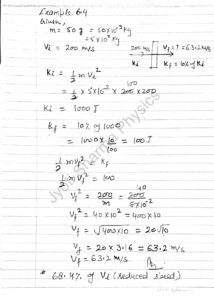 Example 6.4
Given,
m = 50 g = 50×10⁻³ kg
= 5×10⁻² kg
Vi = 200 m/s
200 m/s
Vf = ? = 63.2 m/s
Ki
Kf = 10% of Ki
Ki = ½ m Vi²
= ½ × 5×10⁻² × 200×200
100
Ki = 1000 J
Kf = 10% of 1000
= 1000 × 10/100 = 100 J
½ m Vf² = Kf
½ m Vf² = 100
Vf² = 200/m = 200/5×10⁻²
40
Vf² = 40×10² = 400×10
Vf = √400×10 = 20√10
Vf = 20×3.16 = 63.2 m/s
Vf = 63.2 m/s
* 68.4% of Vi (Reduced speed)
Jyoti Sharma Physics